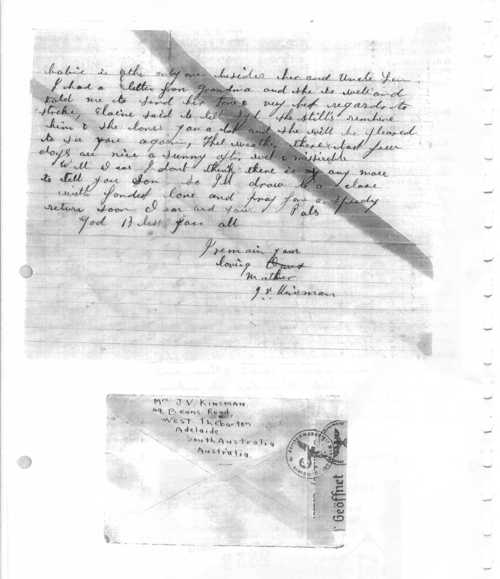 is the only one besides her and Uncle Len.
I had a letter from Grandma and she is well and
told me to send her love & very best regards to
Elaine said to let Syd she still's
him & she loves you a lot and she will be pleased
to see you again, The weather these last few
days are nice & sunny after wet & miserable
Well Dear I don't think there is any more
to tell you Son so I'll draw to a close
with fondest love and pray for a speedy
return soon Dear and your Pals
God Bless you all
I remain your
loving
Mother
J. V. Kinsman
Mrs J.V. KINSMAN
49 Beans Road,
West Thebarton
Adelaide
South Australia
Australia.
Geöffnet